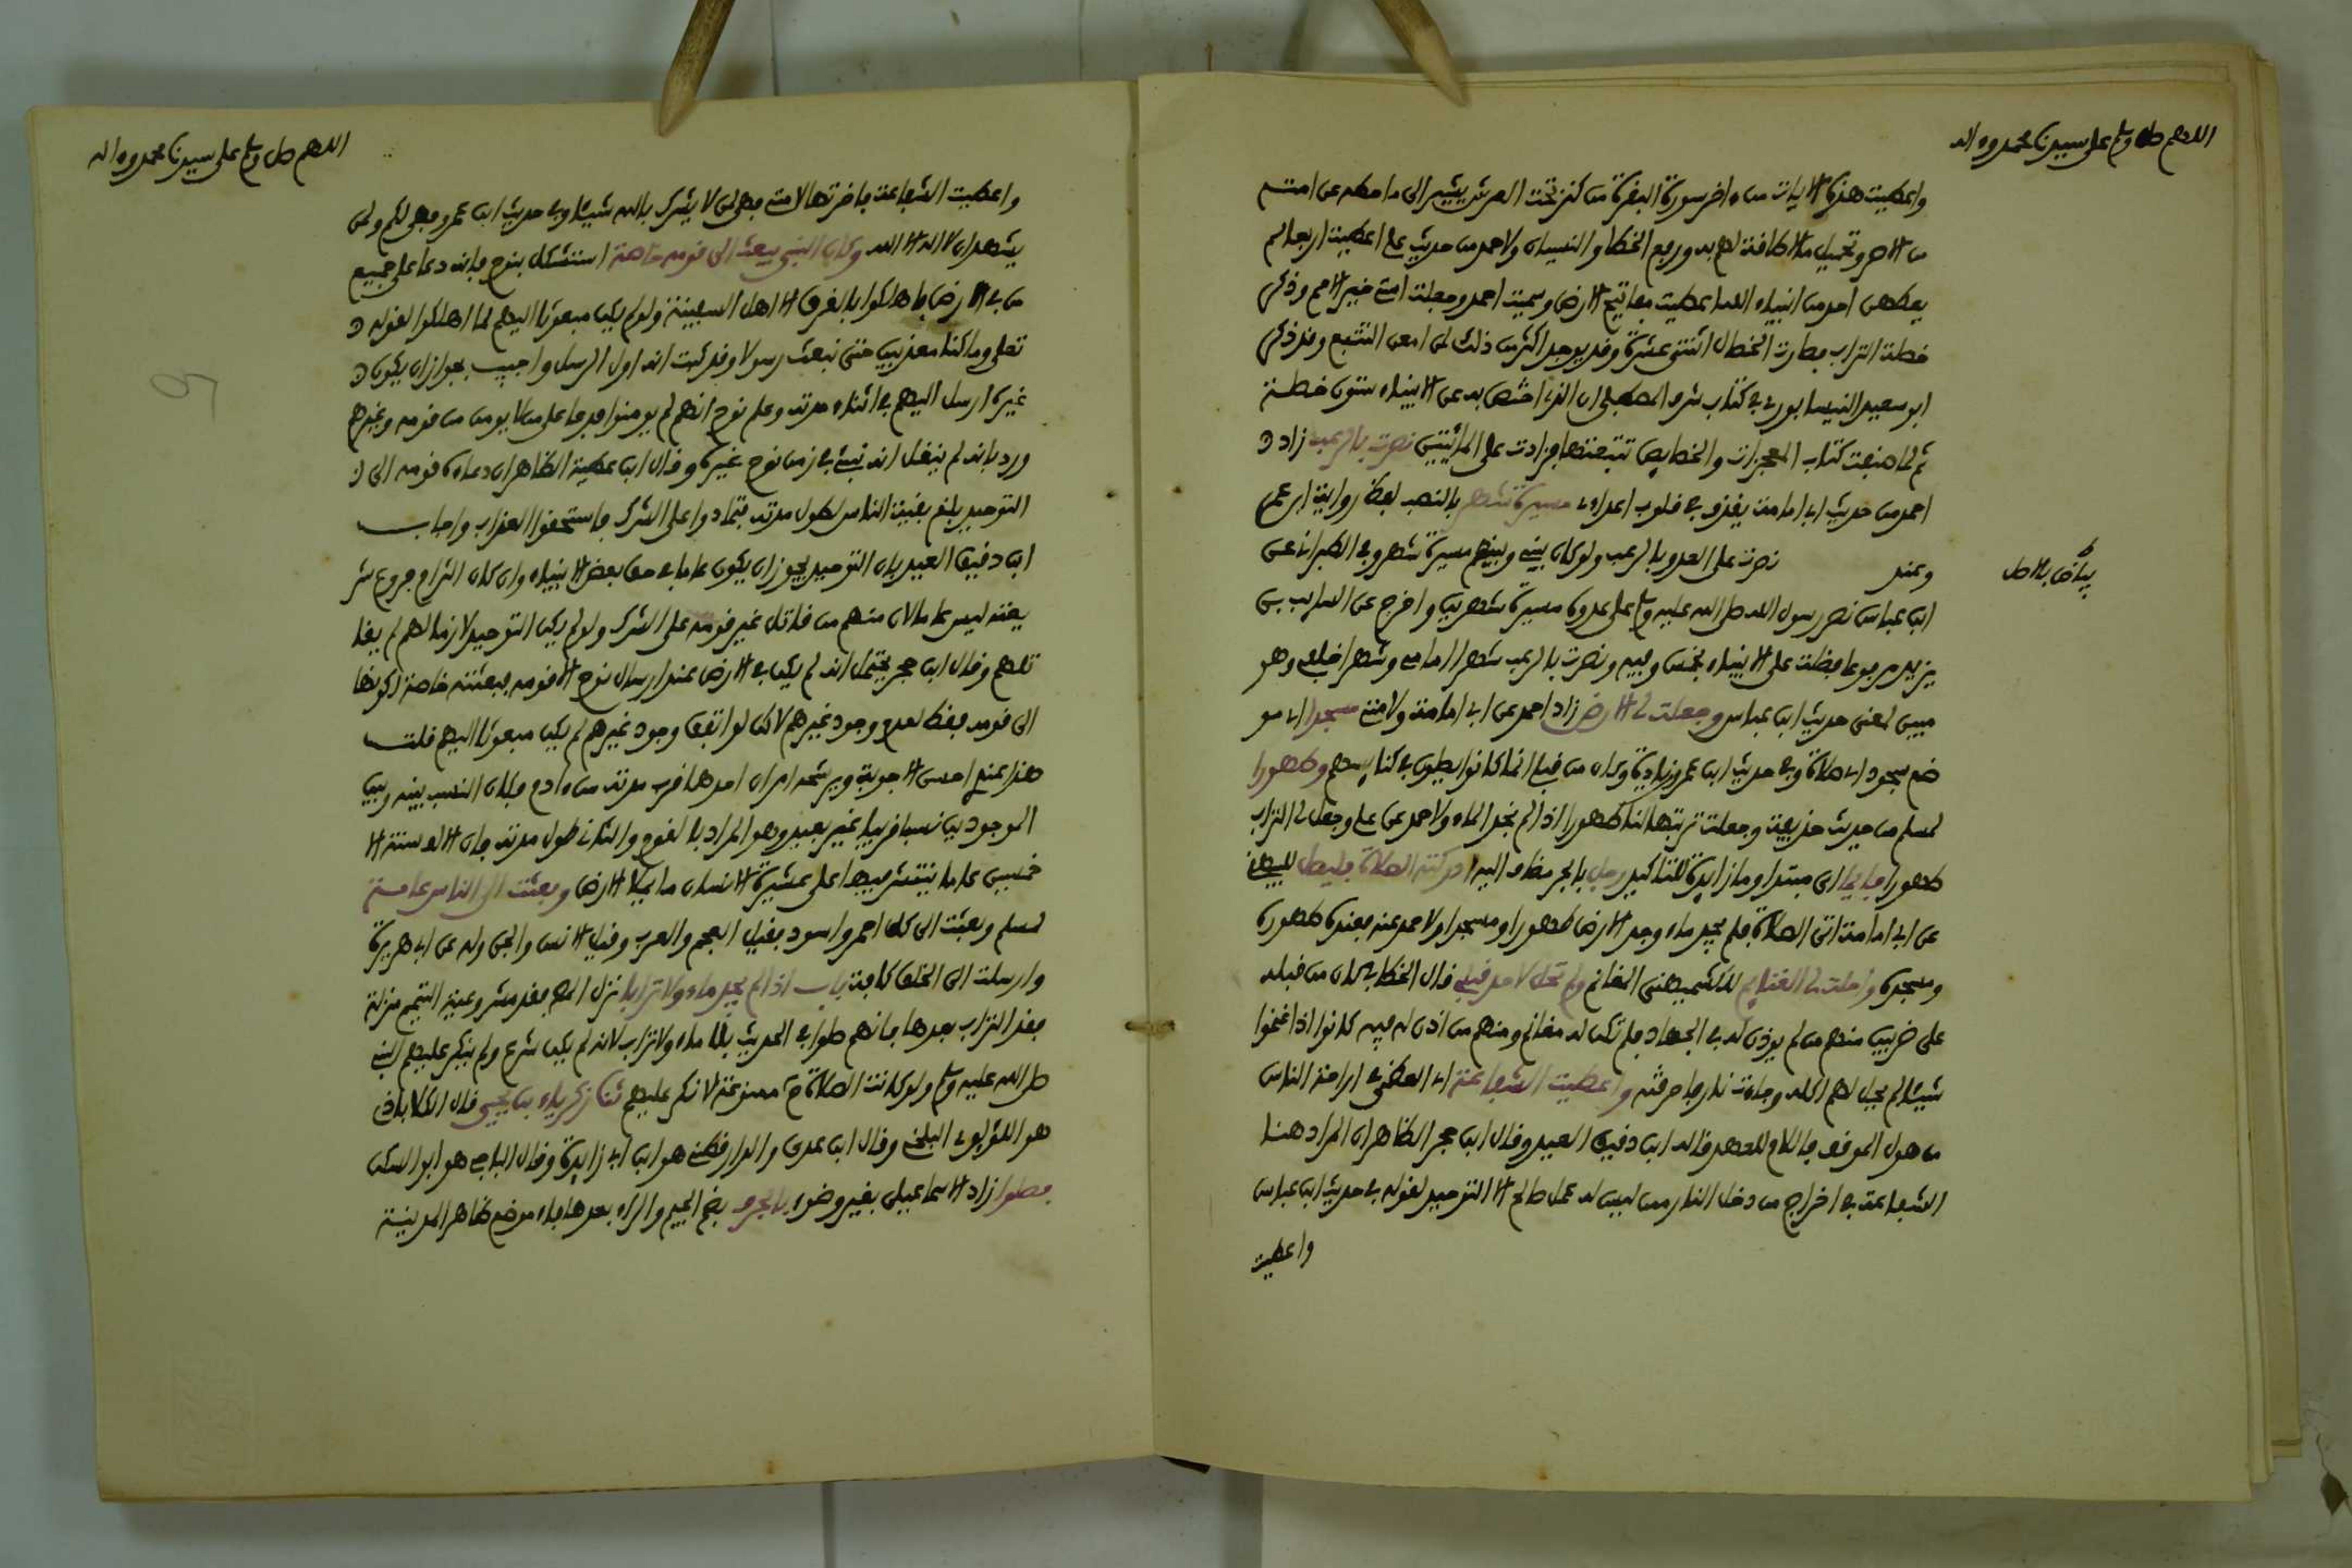 اللهم صل وسلم على سيدنا محمد وءاله
واعطيت هذه الايات من ءاخر سورة البقرة من كنز تحت العرش يشير الى ما حطه عن امته
من الاصر وتحميل ما لا طاقة لهم به ورفع الخطا والنسيان ولاحمد من حديث علي اعطيت اربعا لم
يعطهن احد من انبياء الله اعطيت مفاتيح الارض وسميت احمد وجعلت امتي خير الامم وذكر
خصلة التراب فصارت الخصال اثنتي عشرة وقد يوجد اكثر من ذلك لمن امعن التتبع وقد ذكر
ابو سعيد النيسابوري في كتاب شرف المصطفى ان الذي اختص به عن الانبياء ستون خصلة
ثم لما صنفت كتاب المعجزات والخصايص تتبعتها فزادت على المائتين نصرت بالرعب زاد
احمد من حديث ابي امامة يقذف في قلوب اعداءي مسيرة شهر بالنصب لفظ رواية ابن عمر
وعند نصرت على العدو بالرعب ولو كان بيني وبينهم مسيرة شهر وفي الطبراني عن
بياض بالاصل
ابن عباس نصر رسول الله صلى الله عليه وسلم على عدوه مسيرة شهرين واخرج عن السايب بن
يزيد مرفوعا فضلت على الانبياء بخمس وفيه ونصرت بالرعب شهرا امامي وشهرا خلفي وهو
مبين لمعنى حديث ابن عباس وجعلت لي الارض زاد احمد عن ابي امامة ولامتي مسجدا اي مو
ضع سجود اي صلاة وفي حديث ابن عمر زيادة وكان من قبلي انما كانوا يصلون في كنايسهم وطهورا
لمسلم من حديث حذيفة وجعلت تربتها لنا طهورا اذا لم نجد الماء ولاحمد عن علي وجعل لي التراب
طهورا فايما اي مبتدا وما زايدة للتاكيد رجل بالجر مضاف اليه ادركته الصلاة فليصل للبيهقي
عن ابي امامة اتى الصلاة فلم يجد ماء وجد الارض طهورا ومسجدا ولاحمد عنه فعنده طهوره
ومسجده واحلت لي الغنايم للكشميهني المغانم ولم تحل لاحد قبلي قال الخطابي كان من قبله
على ضربين منهم من لم يوذن له في الجهاد فلم تكن له مغانم ومنهم من اذن له فيه كانوا اذا غنموا
شيئا لم يحل لهم اكله وجاءت نار فاحرقته واعطيت الشفاعة اي العظمى في اراحة الناس
من هول الموقف فاللام للعهد قاله ابن دقيق العيد وقال ابن حجر الظاهر ان المراد هنا
الشفاعة في اخراج من دخل النار ممن ليس له عمل صالح الا التوحيد لقوله في حديث ابن عباس
واعطيت
اللهم صل وسلم على سيدنا محمد وءاله
واعطيت الشفاعة فاخرتها لامتي فهي لمن لا يشرك بالله شيئا وفي حديث ابن عمرو فهي لكم ولمن
يشهد ان لا اله الا الله وكان النبي يبعث الى قومه خاصة استشكل بنوح فانه دعا على جميع
من في الارض فاهلكوا بالغرق الا اهل السفينة ولو لم يكن مبعوثا اليهم لما اهلكوا لقوله
تعلى وما كنا معذبين حتى نبعث رسولا وقد ثبت انه اول الرسل واجيب بجواز ان يكون
غيره ارسل اليهم في اثناء مدته وعلم نوح انهم لم يومنوا فدعا على من لا يومن من قومه وغيرهم
ورد بانه لم ينقل انه نبئ في زمن نوح غيره وقال ابن عطية الظاهر ان دعاءه قومه الى
التوحيد بلغ بقية الناس لطول مدته فتمادوا على الشرك فاستحقوا العذاب واجاب
ابن دقيق العيد بان التوحيد يجوز ان يكون عاما في حق بعض الانبياء وان كان التزام فروع شر
يعته ليس عاما لان منهم من قاتل غير قومه على الشرك ولو لم يكن التوحيد لازما لهم لم يقا
تلهم وقال ابن حجر يحتمل انه لم يكن في الارض عند ارسال نوح الا قومه فبعثته خاصة لكونها
الى قومه فقط لعدم وجود غيرهم لاكن لو اتفق وجود غيرهم لم يكن مبعوثا اليهم قلت
هذا عندي احسن الاجوبة ويرشحه امران احدهما قرب مدته من ءادم فكان النسب بينه وبين
الموجودين نسبا قريبا غير بعيد وهو المراد بالقوم والثاني طول مدته فان الالف سنة الا
خمسين عاما ينتشر فيها على عشيرة الانسان ما يملا الارض وبعثت الى الناس عامة
لمسلم وبعثت الى كل احمر واسود فقيل العجم والعرب وقيل الانس والجن وله عن ابي هريرة
وارسلت الى الخلق كافة باب اذا لم يجد ماء ولا ترابا نزل المص فقد مشروعية التيمم منزلة
فقد التراب بعدها فانهم صلوا في الحديث بلا ماء ولا تراب لانه لم يكن شرع ولم ينكر عليهم النبي
صلى الله عليه وسلم ولو كانت الصلاة ح ممنوعة لانكر عليهم ثنا زكرياء بن يحيى قال الكلاباذي
هو اللؤلؤي البلخي وقال ابن عدي والدارقطني هو ابن ابي زايدة وقال الباجي هو ابو السكن
فصلوا زاد الاسماعيلي بغير وضوء بالجرف بضم الجيم والراء بعدها فاء موضع ظاهر المدينة